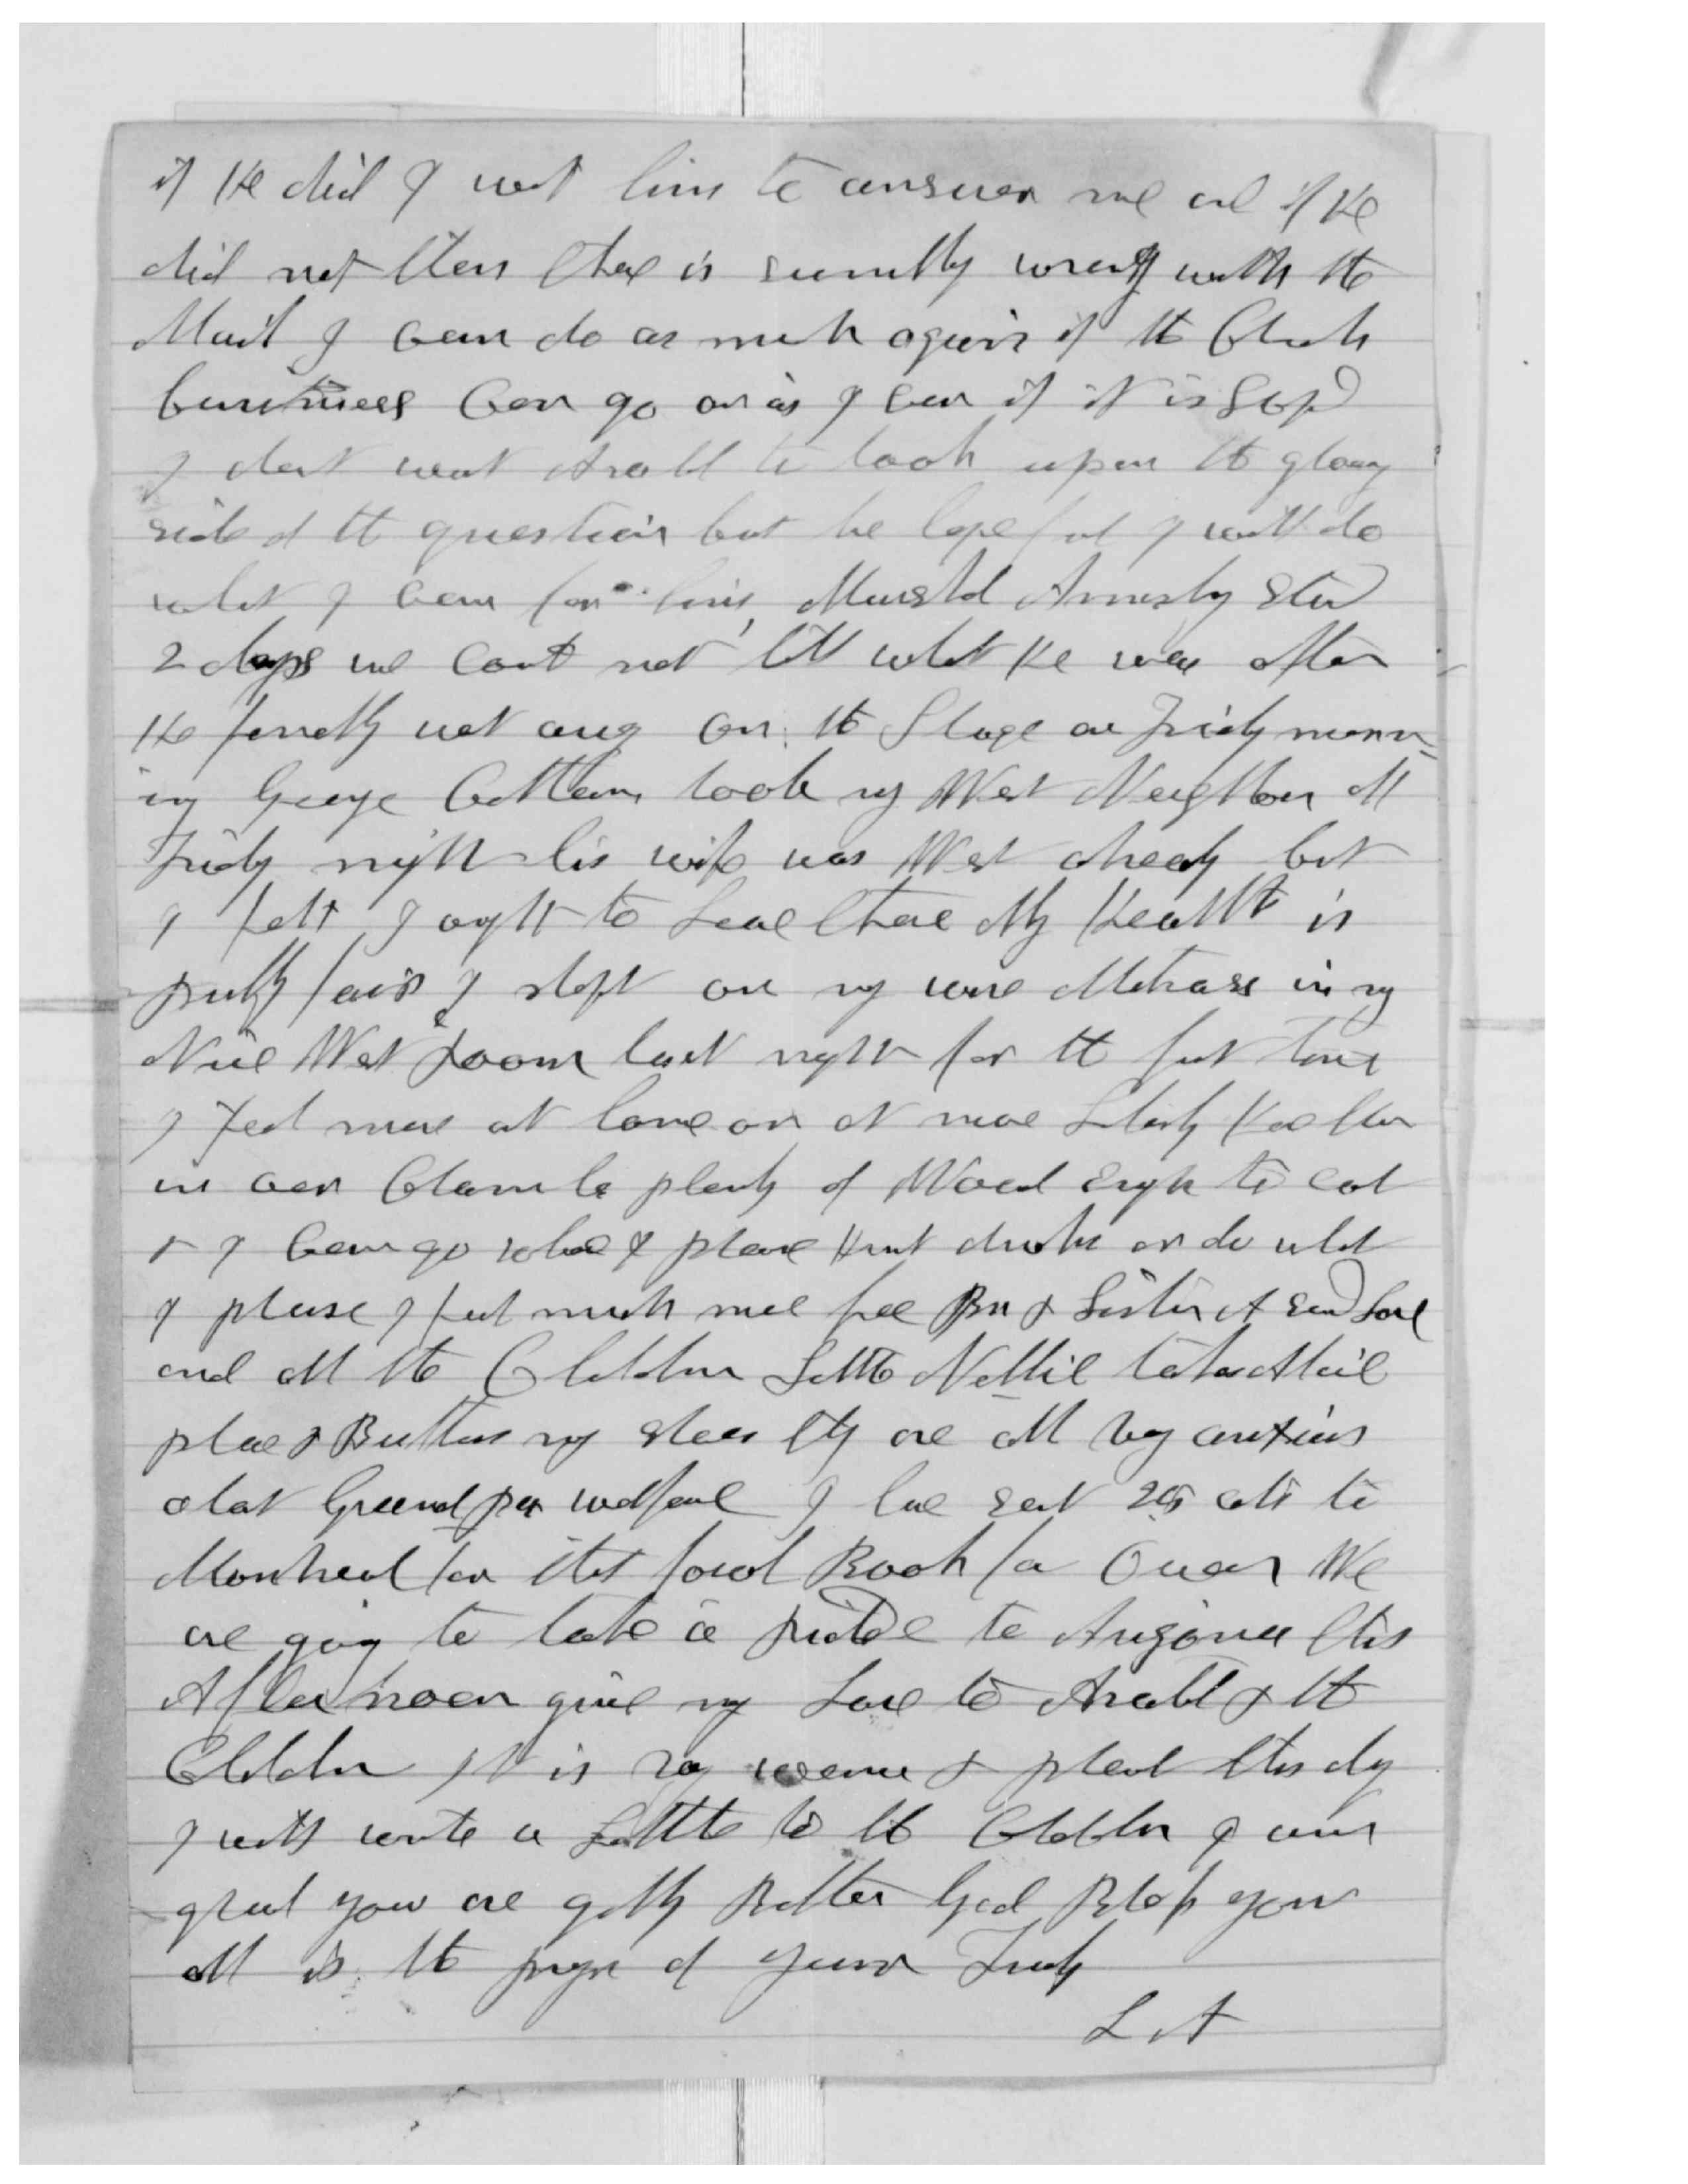 if He did I want him to answer me and if He
did not then there is sumthing wrong with the
Mail I can do as much again if the Church
business Can go on as I can if it is Stopd
I dont want to look upon the gloomy
side of the question but be hopeful I will do
what I can for him, Marshal Armsby Staid
2 days we Could not tell what He was after
He finelly went away on the Stage on Friday morn-
ing George Cottam took my West Neighbour all
Friday night his wife was West already but
I felt I ought to Leave there My Health is
pretty fair I slept on my wire Matrass in my
Nice West Room last night for the first time
I Feel more at home or at more Liberty Here than
in our Chamber plenty of Wood Enough to eat
& I Can go whare I please Hunt ducks or do what
I please I feel much more free Bro & Sister A send Love
and all the Children Little Nellie takes Mail
place & Buttons my shoes they are all very anxious
about Grandpa welfare I have sent 25 cts to
Montreal for that fowl Book for Owen We
are going to take a Ride to Arizona this
Afternoon give my Love to & the
Children It is very warme & pleasant this day
I will write a Little to the Children I am
glad you are getting Better God Bless you
all is the prayer of yours Truly
L A